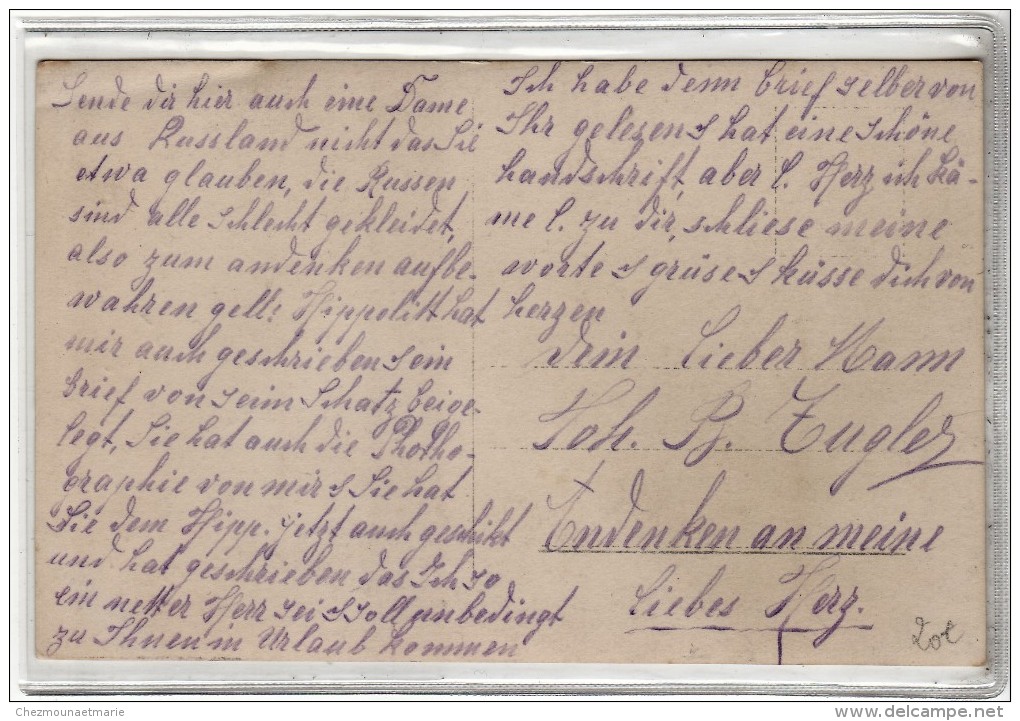 Sende dir hier auch eine Dame
aus Russland nicht das Sie
etwa glauben, die Russen
sind alle schlecht gekleidet,
also zum andenken aufbe-
wahren gell: Hippolitt hat
mir auch geschrieben s ein
brief von seim Schatz beige-
legt, Sie hat auch die Photho-
graphie von mir s Sie hat
Sie dem Hipp. jetzt auch geschikt
und hat geschrieben das Ich so
ein netter Herr sei s soll unbedingt
zu Ihnen in Urlaub kommen
Ich habe denn brief selber von
Ihr gelesen s hat eine schöne
handschrift, aber l. Herz ich kä-
me l. zu dir, schliese meine
worte s grüse s küsse dich von
herzen
dein lieber Mann
Joh. B. Zugler
Andenken an meine
liebes Herz.
20€
© Chezmounaetmarie
http://www.delcampe.net